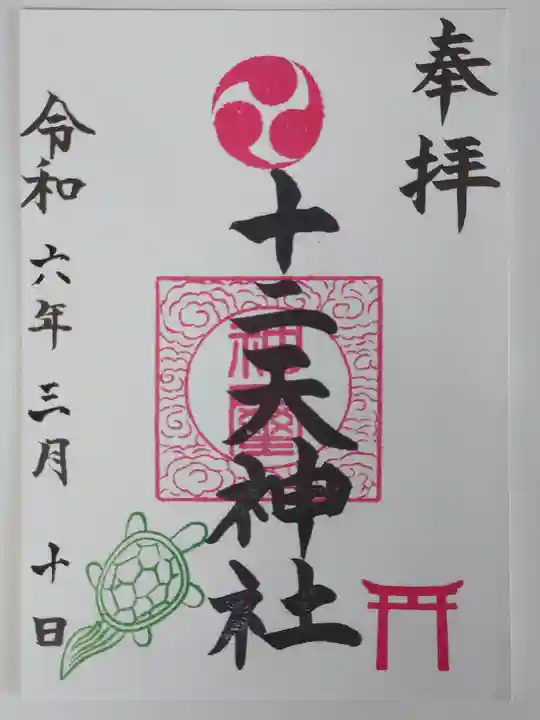 奉拝
十二天神社
神璽
令和六年三月十日